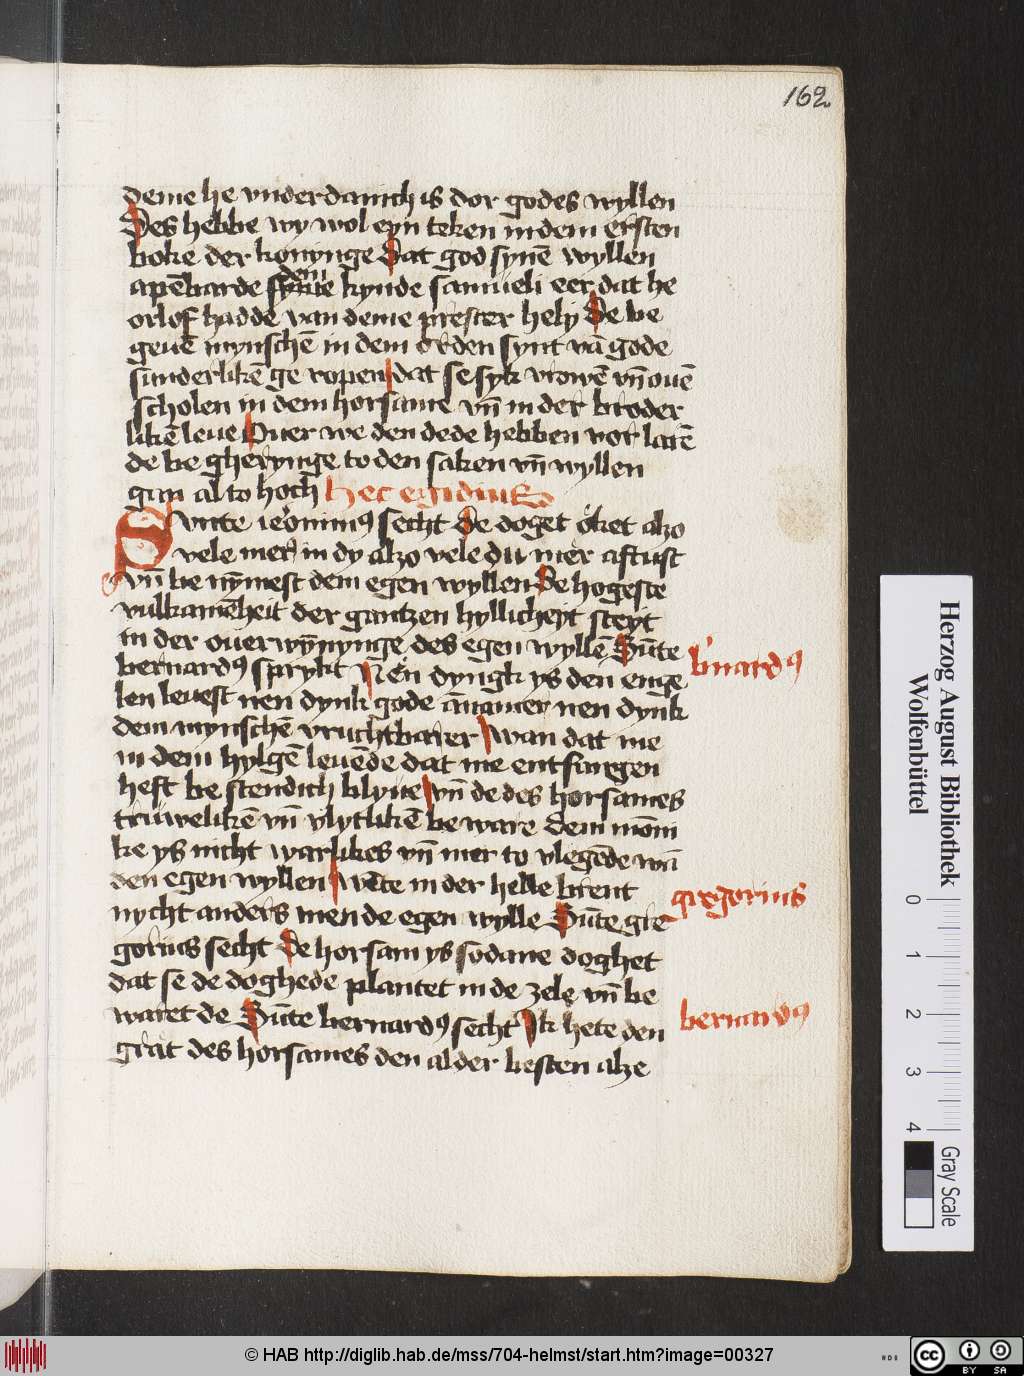 162
deme he vnderdanich is dor godes wyllen
Des hebbe wy wol eyn teken in dem ersten
boke der konynge Dat god synē wyllen
apēbarde dem kynde samueli eer dat he
orlof hadde van deme prester hely De be
geuē mynschē in dem orden synt vā gode
sunderlikē ge ropen dat se syk vrowē vn̄ ouē
scholen in dem horsame vn̄ in der broder
likē leue Ouer we den dede hebben vor latē
de be gherynge to den saken vn̄ wyllen
gan al to hoch hec egidius
Sunte ieronimꝰ secht De doget oket alzo
vele mer in dy alzo vele du mer aftust
vn̄ be nȳmest dem egen wyllen De hogeste
vulkamēheit der gantzen hyllicheyt steyt
in der ouerwȳnynge des egen wyllē Sūte
bernardꝰ sprykt Nen dyngk ys den enge
len leuest nen dynk gode ānamer nen dynk
dem mynschē vruchtbarer wan dat me
in dem hylgē leuēde dat me entfangen
heft be stendich blyue vn̄ de des horsames
truwelikē vn̄ vlytlikē be ware dem moni
ke ys nicht warlikes vn̄ mer to vlegēde wā
den egen wyllen wēte in der helle brent
nycht anders men de egen wylle Sūte gre
gorius secht De horsam ys sodane doghet
dat se de doghede plantet in de zele vn̄ be
waret de Sūte bernardꝰ secht Ik hete den
grat des horsames den alder besten alze
b'nardꝰ
gregorius
bernardꝰ
Herzog August Bibliothek
Wolfenbüttel
0 1 2 3 4
Gray Scale
© HAB http://diglib.hab.de/mss/704-helmst/start.htm?image=00327
cc BY SA